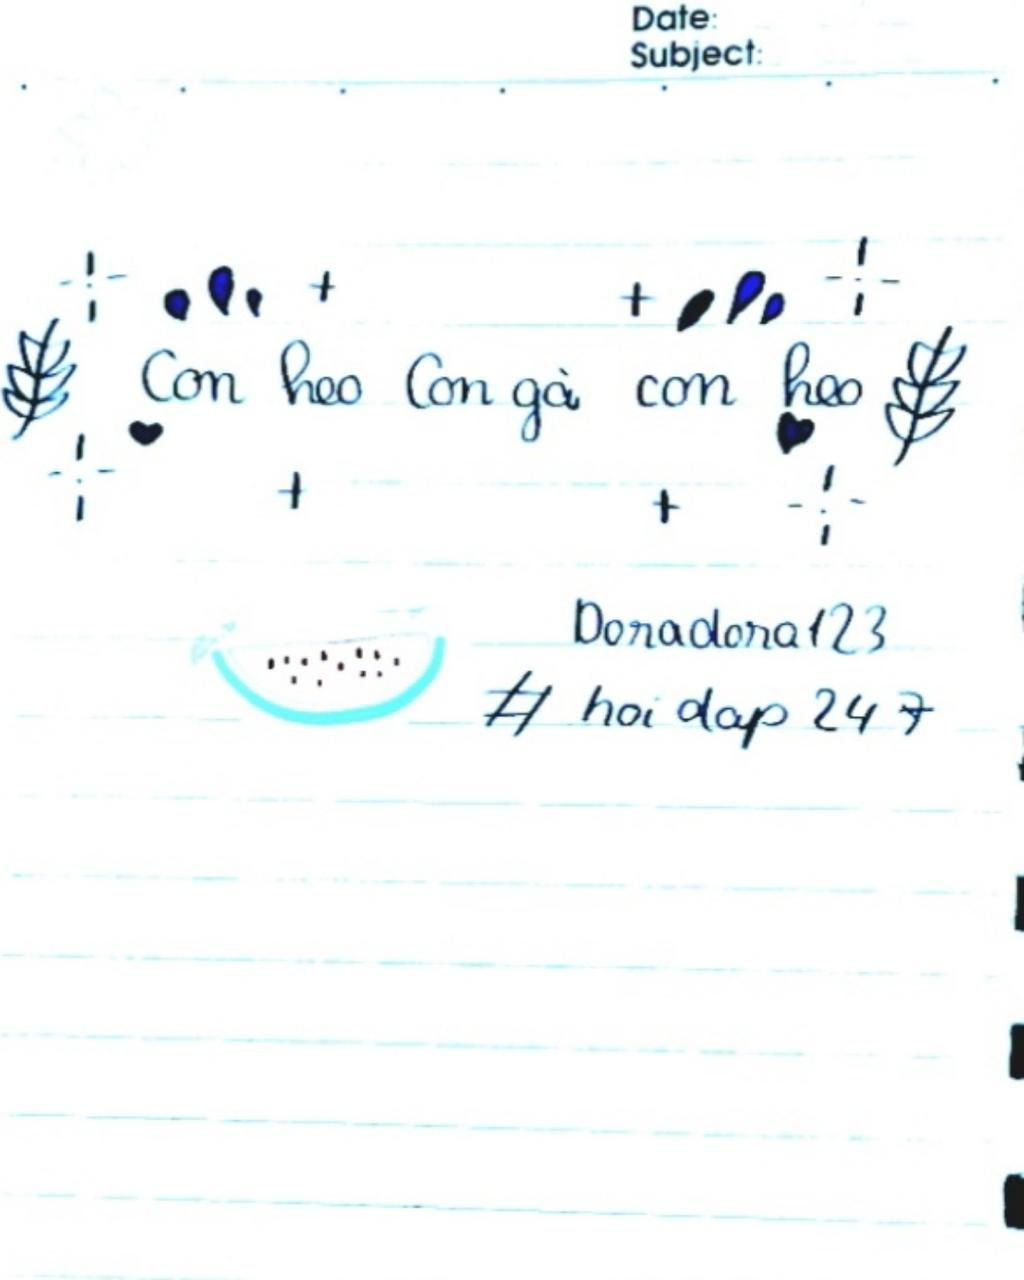 Date:
Subject:
Con heo Con gà con heo
Donadona123
# hoi dap 247